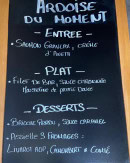 ARDOISE
DU MOMENT
- ENTRÉE -
• SAUMON GRAVLAX, CRÈME
D'ANETH
- PLAT -
• FILET DE BAR, SAUCE CITRONNÉE
MOUSSELINE DE PATATE DOUCE
- DESSERTS -
• BRIOCHE PERDU, SAUCE CARAMEL
• ASSIETTE 3 FROMAGES :
LIVAROT AOP, CAMEMBERT & COMTÉ